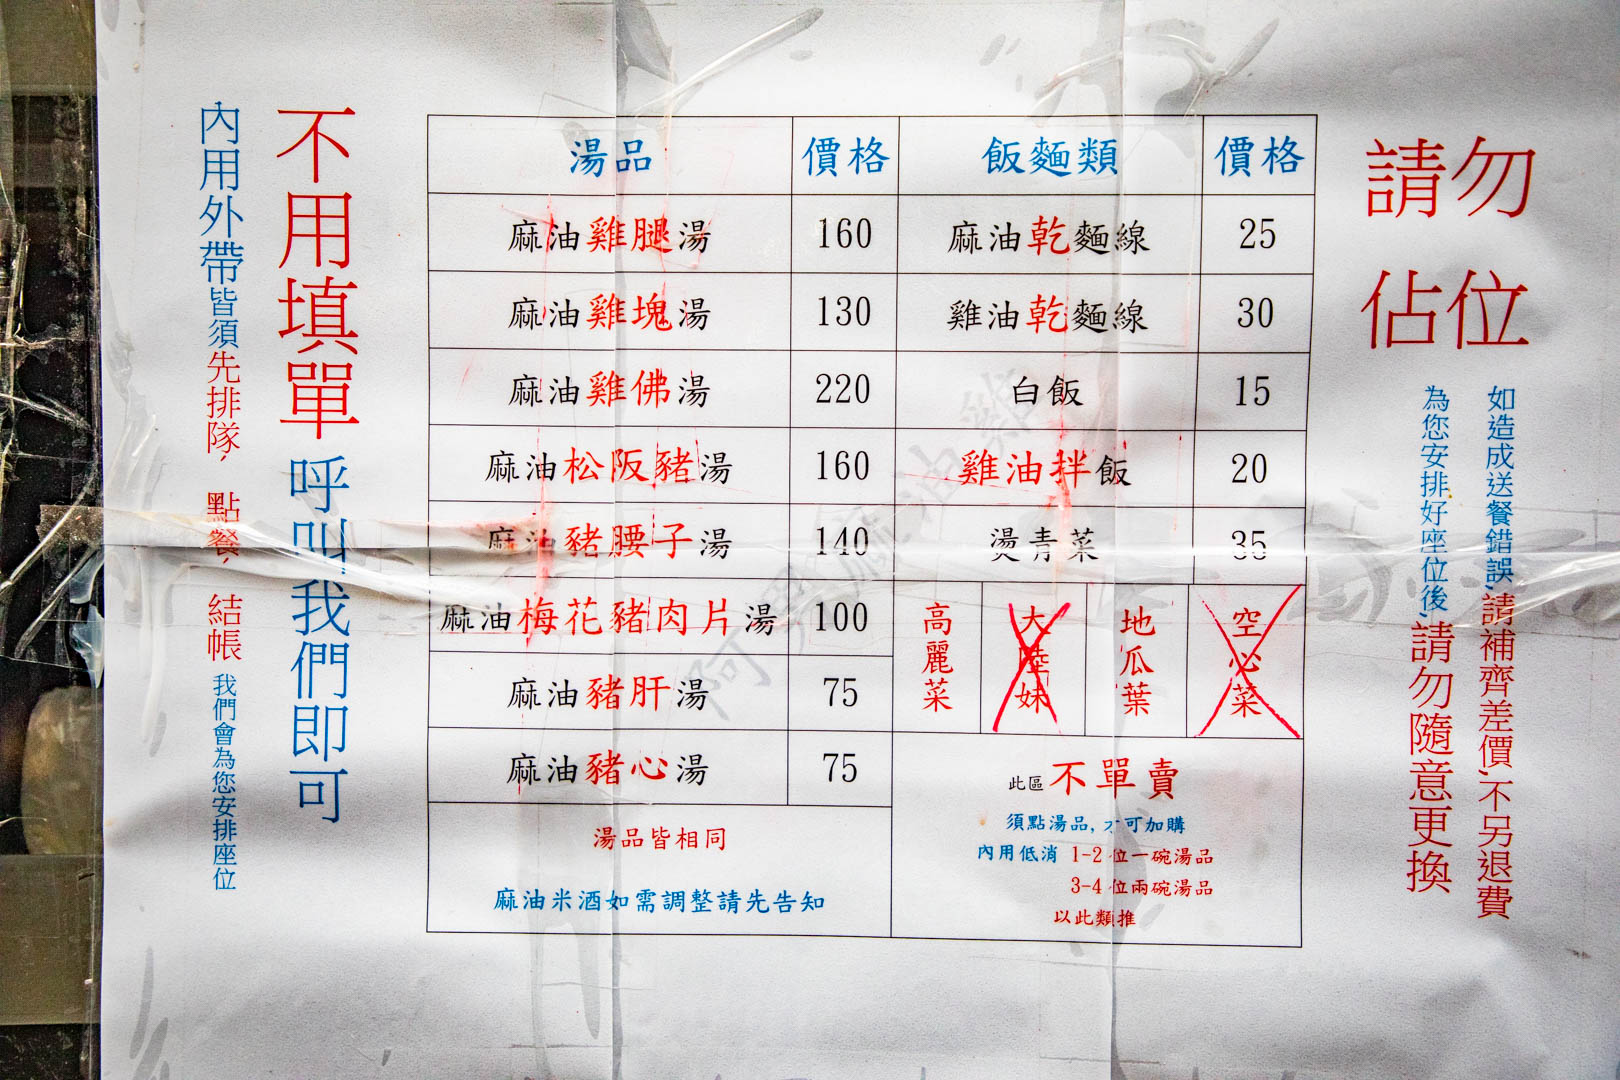 不用填單 呼叫我們即可
內用外帶皆須先排隊, 點餐, 結帳 我們會為您安排座位
湯品 價格 飯麵類 價格
麻油雞腿湯 160 麻油乾麵線 25
麻油雞塊湯 130 雞油乾麵線 30
麻油雞佛湯 220 白飯 15
麻油松阪豬湯 160 雞油拌飯 20
麻油豬腰子湯 140 燙青菜 35
麻油梅花豬肉片湯 100
高麗菜 大陸妹 地瓜葉 空心菜
麻油豬肝湯 75
麻油豬心湯 75
湯品皆相同
麻油米酒如需調整請先告知
此區不單賣
須點湯品, 才可加購
內用低消 1-2 位一碗湯品
3-4 位兩碗湯品
以此類推
請勿
佔位
如造成送餐錯誤,請補齊差價,不另退費
為您安排好座位後,請勿隨意更換
阿興麻油雞